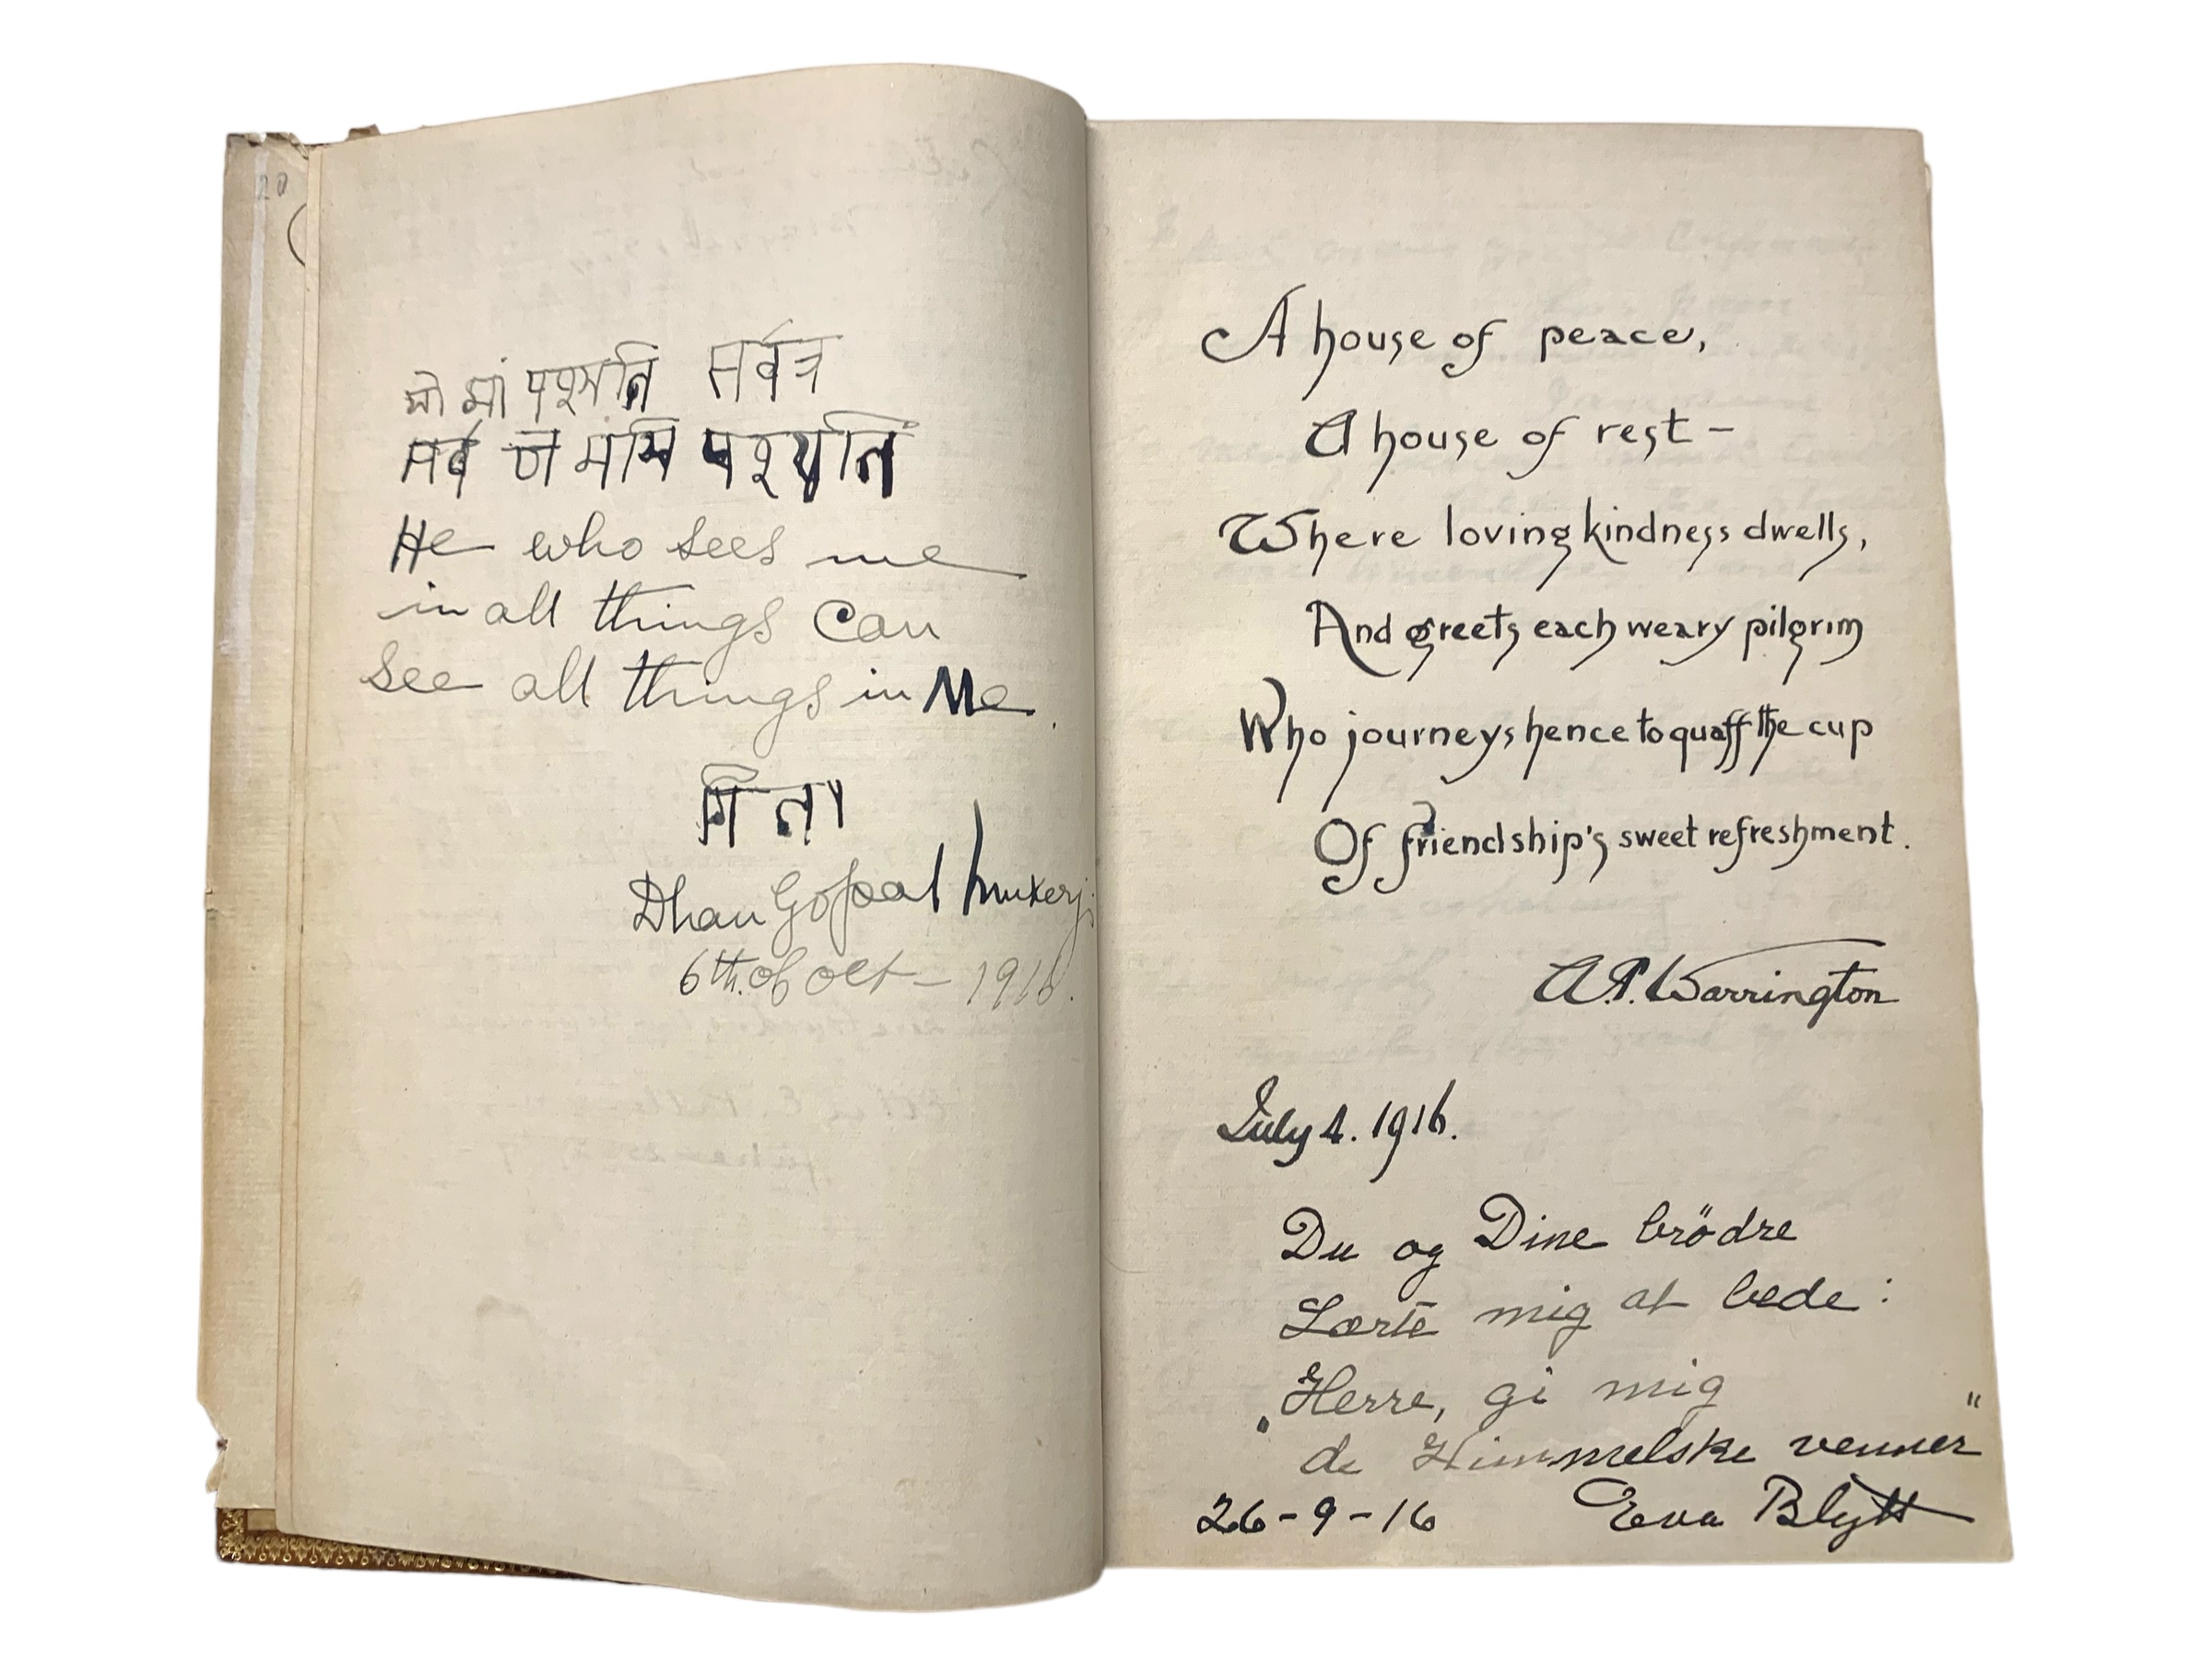 20
यो मां पश्यति सर्वत्र
सर्वं च मयि पश्यति
He who sees me
in all things Can
See all things in Me.
गिता
Dhan Gopal Mukerji
6th. of Oct - 1916.
A house of peace,
A house of rest -
Where loving kindness dwells,
And greets each weary pilgrim
Who journeys hence to quaff the cup
Of friendship's sweet refreshment.
A.P. Warrington
July 4. 1916.
Du og Dine brödre
Lærte mig at bede:
„Herre, gi mig
de Himmelske venner"
26-9-16 Eva Blytt